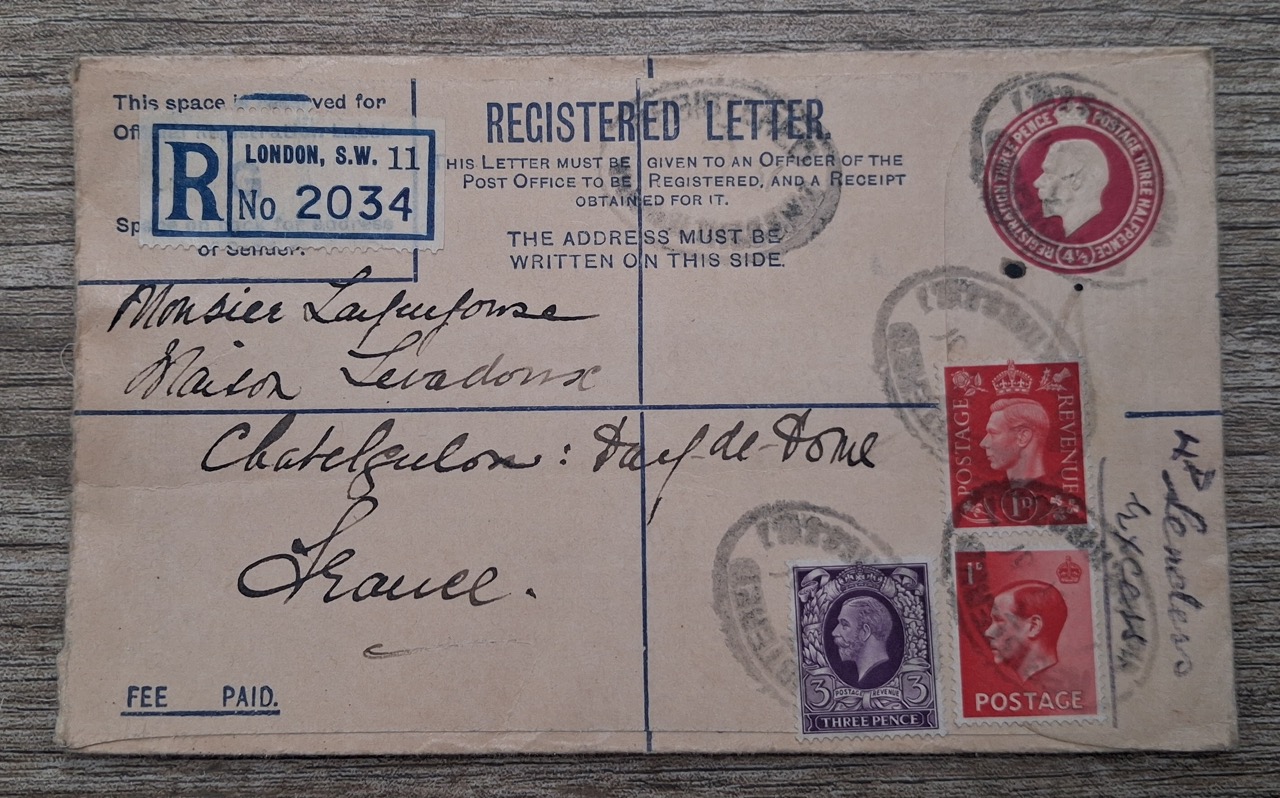 This space is ved for
Of
R LONDON, S.W. 11
No 2034
Sp
of Sender.
REGISTERED LETTER.
THIS LETTER MUST BE GIVEN TO AN OFFICER OF THE
POST OFFICE TO BE REGISTERED, AND A RECEIPT
OBTAINED FOR IT.
THE ADDRESS MUST BE
WRITTEN ON THIS SIDE.
REGISTRATION THREE PENCE POSTAGE THREE HALFPENCE
4½
Monsier
Maison Levadoux
Chatelgulon: Puy-de-Dome
France.
POSTAGE REVENUE
1D
1D
POSTAGE
3 POSTAGE REVENUE 3
THREE PENCE
4D Senders
FEE PAID.